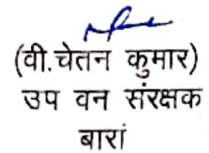 (वी.चेतन कुमार)
उप वन संरक्षक
बारां